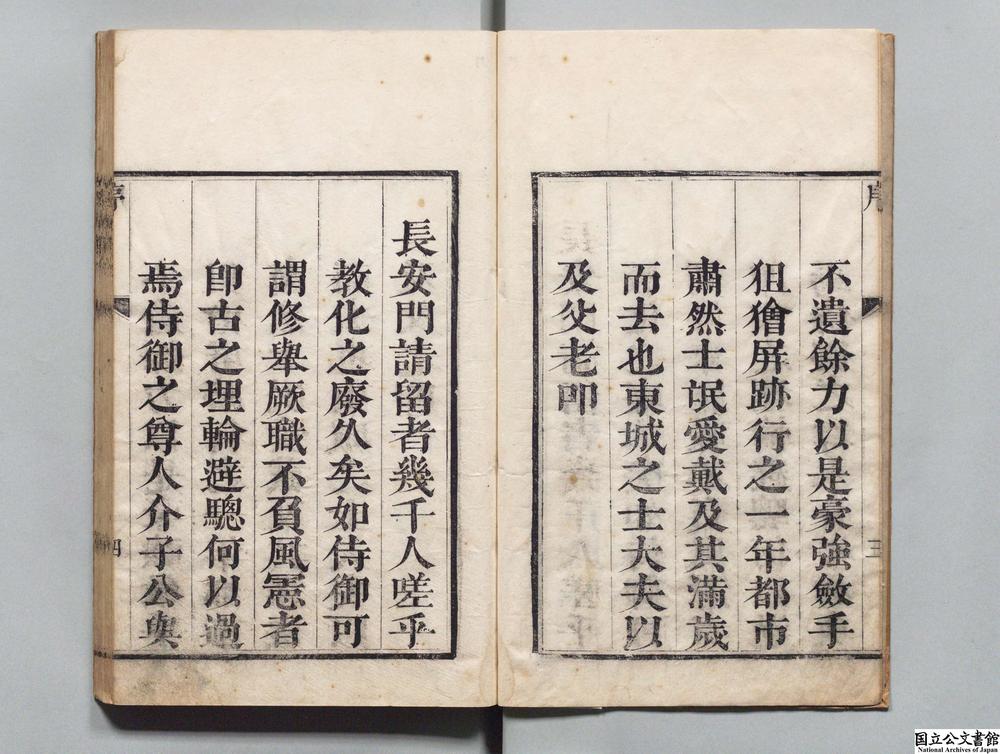 不遺餘力以是豪強斂手
狙獪屏跡行之一年都市
肅然士氓愛戴及其滿歲
而去也東城之士大夫以
及父老叩
長安門請留者幾千人嗟乎
教化之廢久矣如侍御可
謂修舉厥職不負風憲者
卽古之埋輪避驄何以過
焉侍御之尊人介子公與
序
三
序
四
国立公文書館
National Archives of Japan